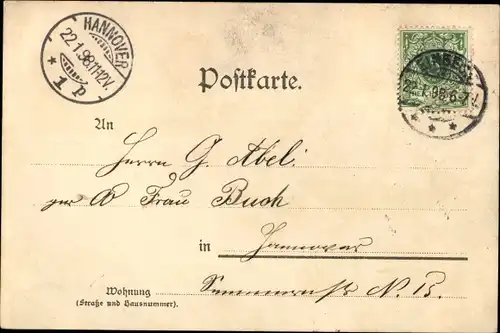 HANNOVER
22.1.98.11-12V.
* 1 P *
22.1.98.6-7
Postkarte.
An
Herrn G. Abel.
Frau Buch
in Hannover
Wohnung
(Straße und Hausnummer).